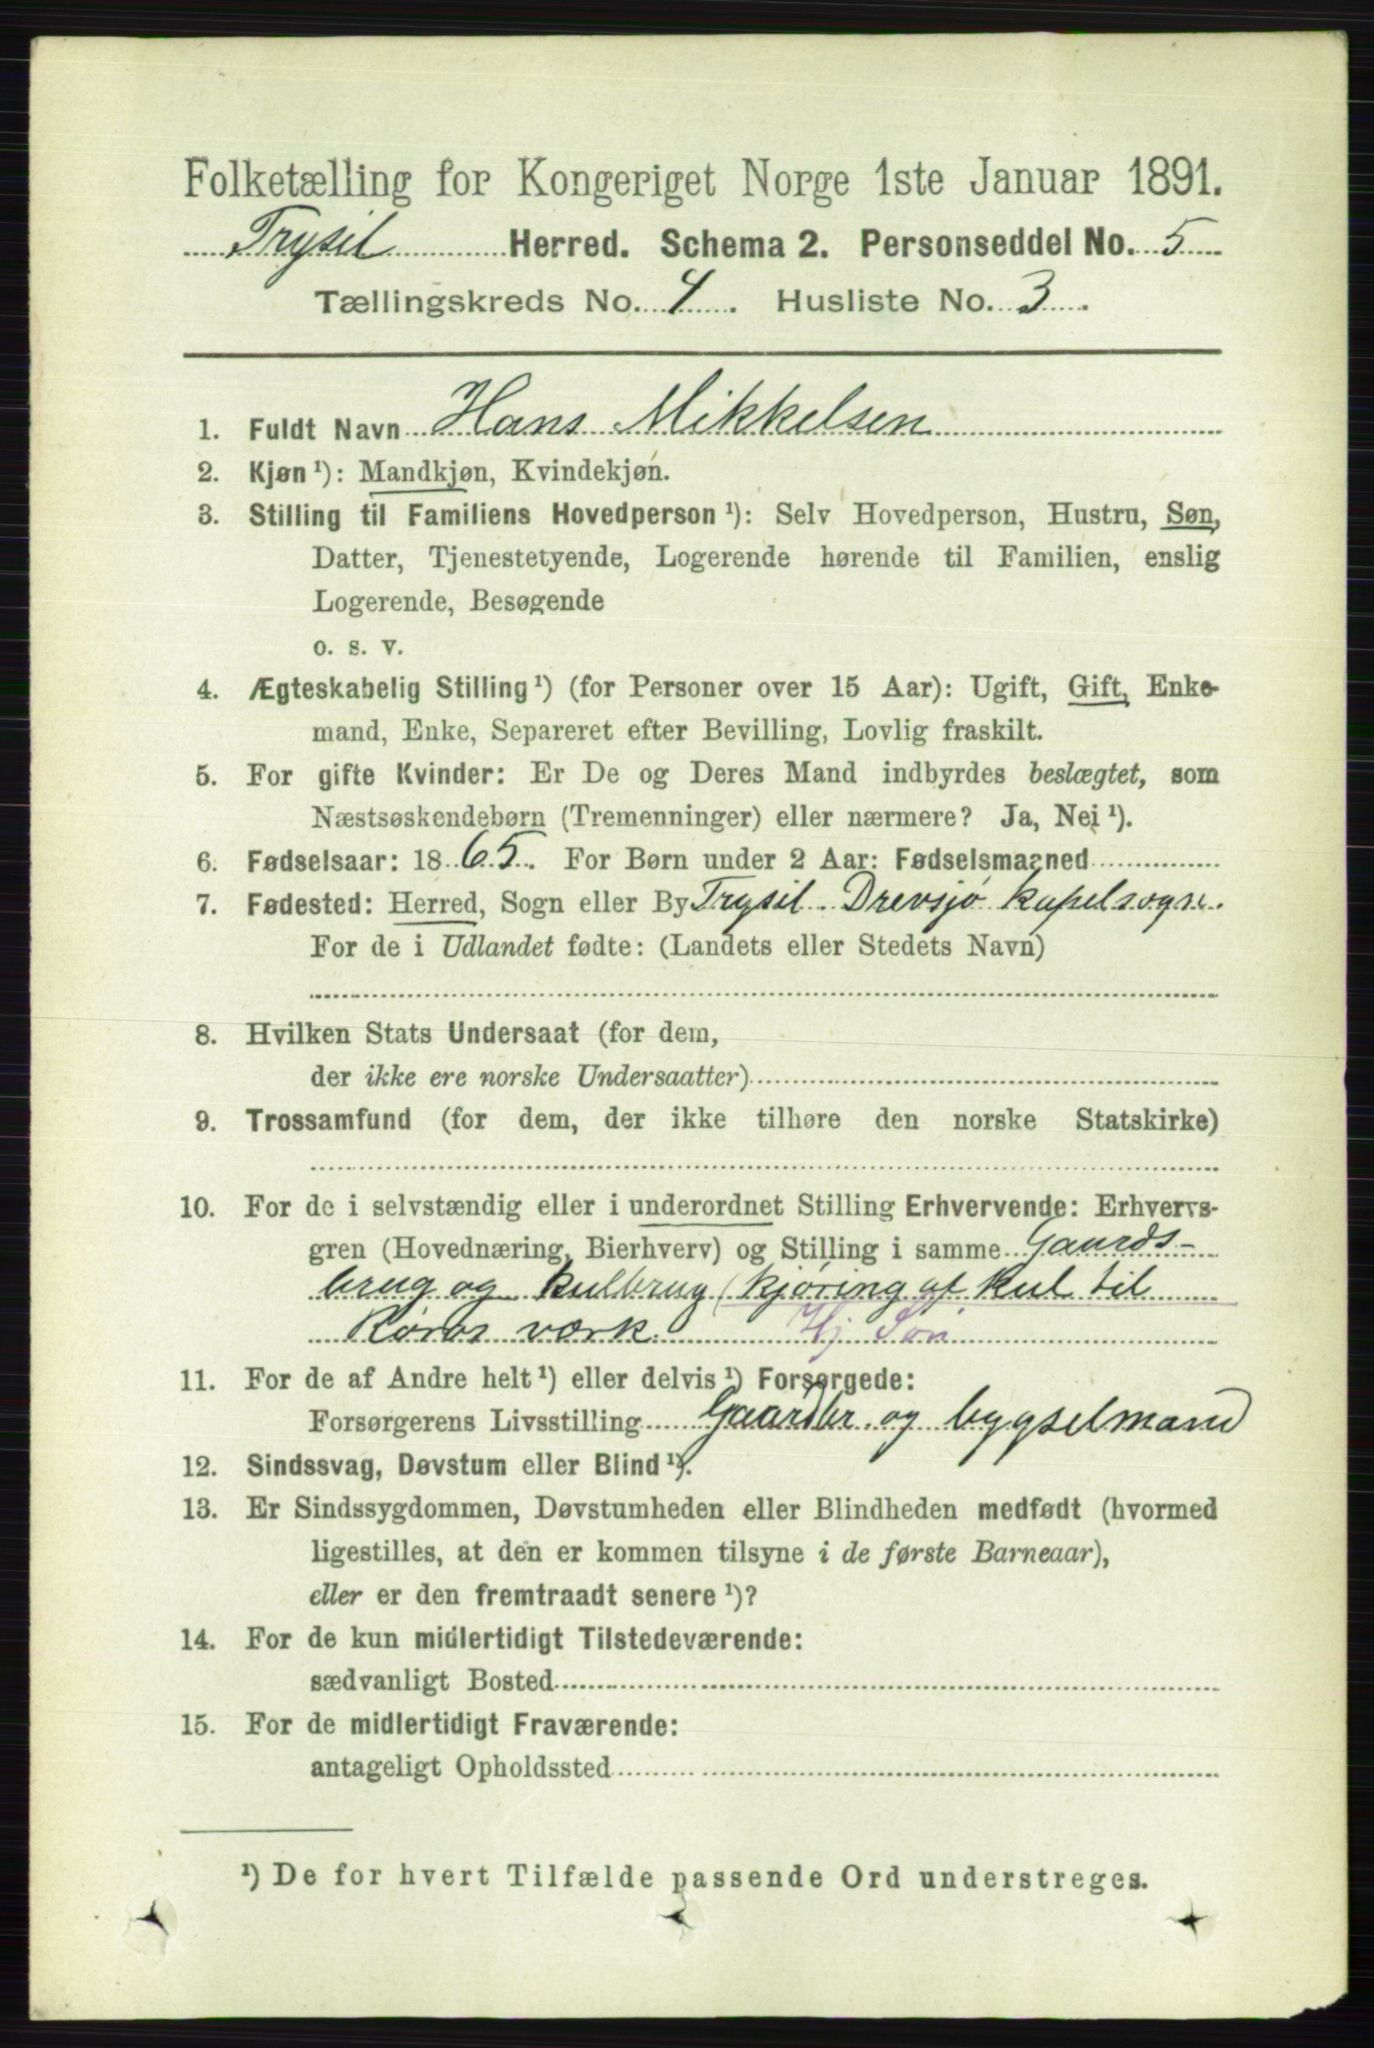 Folketælling for Kongeriget Norge 1ste Januar 1891.
Trysil Herred. Schema 2. Personseddel No. 5
Tællingskreds No. 4. Husliste No. 3.
1. Fuldt Navn Hans Mikkelsen
2. Kjøn ¹): Mandkjøn, Kvindekjøn.
3. Stilling til Familiens Hovedperson ¹): Selv Hovedperson, Hustru, Søn,
Datter, Tjenestetyende, Logerende hørende til Familien, enslig
Logerende, Besøgende
o. s. v.
4. Ægteskabelig Stilling ¹) (for Personer over 15 Aar): Ugift, Gift, Enke-
mand, Enke, Separeret efter Bevilling, Lovlig fraskilt.
5. For gifte Kvinder: Er De og Deres Mand indbyrdes beslægtet, som
Næstsøskendebørn (Tremenninger) eller nærmere? Ja, Nei ¹).
6. Fødselsaar: 1865. For Børn under 2 Aar: Fødselsmaaned
7. Fødested: Herred, Sogn eller By Trysil. Drevsjø kapelsogn.
For de i Udlandet fødte: (Landets eller Stedets Navn)
8. Hvilken Stats Undersaat (for dem,
der ikke ere norske Undersaatter)
9. Trossamfund (for dem, der ikke tilhøre den norske Statskirke)
10. For de i selvstændig eller i underordnet Stilling Erhvervende: Erhvervs-
gren (Hovednæring, Bierhverv) og Stilling i samme Gaards-
brug og kulbrug (kjøring af kul til
Røros værk. Hj Søn
11. For de af Andre helt ¹) eller delvis ¹) Forsørgede:
Forsørgerens Livsstilling Gaardbr. og bygselmand
12. Sindssvag, Døvstum eller Blind ¹).
13. Er Sindssygdommen, Døvstumheden eller Blindheden medfødt (hvormed
ligestilles, at den er kommen tilsyne i de første Barneaar),
eller er den fremtraadt senere ¹)?
14. For de kun midlertidigt Tilstedeværende:
sædvanligt Bosted
15. For de midlertidigt Fraværende:
antageligt Opholdssted
¹) De for hvert Tilfælde passende Ord understreges.